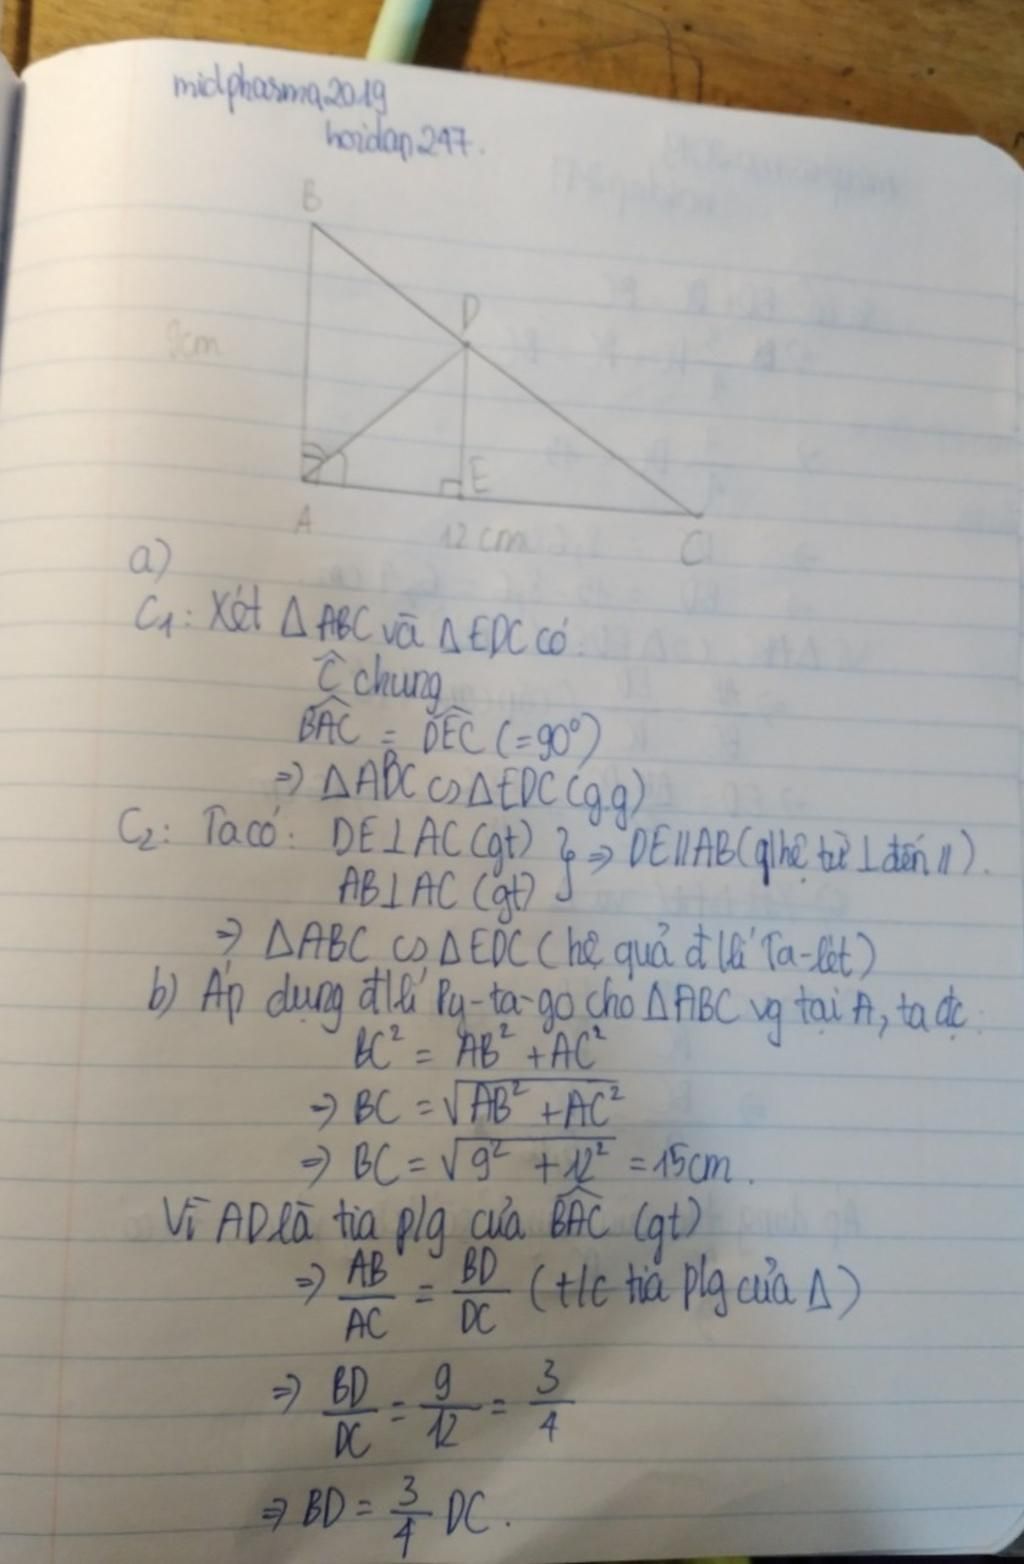 midphasma2019
hoidap247.
B
D
9cm
E
A
12cm
C
a)
C₁: Xét ΔABC và ΔEDC có:
Ĉ chung
BAC = DEC (=90°)
=> ΔABC ∽ ΔEDC (g.g)
C₂: Ta có: DE⊥AC (gt) } => DE//AB (q/hệ từ ⊥ đến //).
AB⊥AC (gt)
=> ΔABC ∽ ΔEDC (hệ quả đ lí Ta-lét)
b) Áp dụng đ lí Py-ta-go cho ΔABC vg tại A, ta đc:
BC² = AB² + AC²
=> BC = √(AB² + AC²)
=> BC = √(9² + 12²) = 15cm.
Vì AD là tia p/g của BAC (gt)
=> AB/AC = BD/DC (t/c tia p/g của Δ)
=> BD/DC = 9/12 = 3/4
=> BD = 3/4 DC.